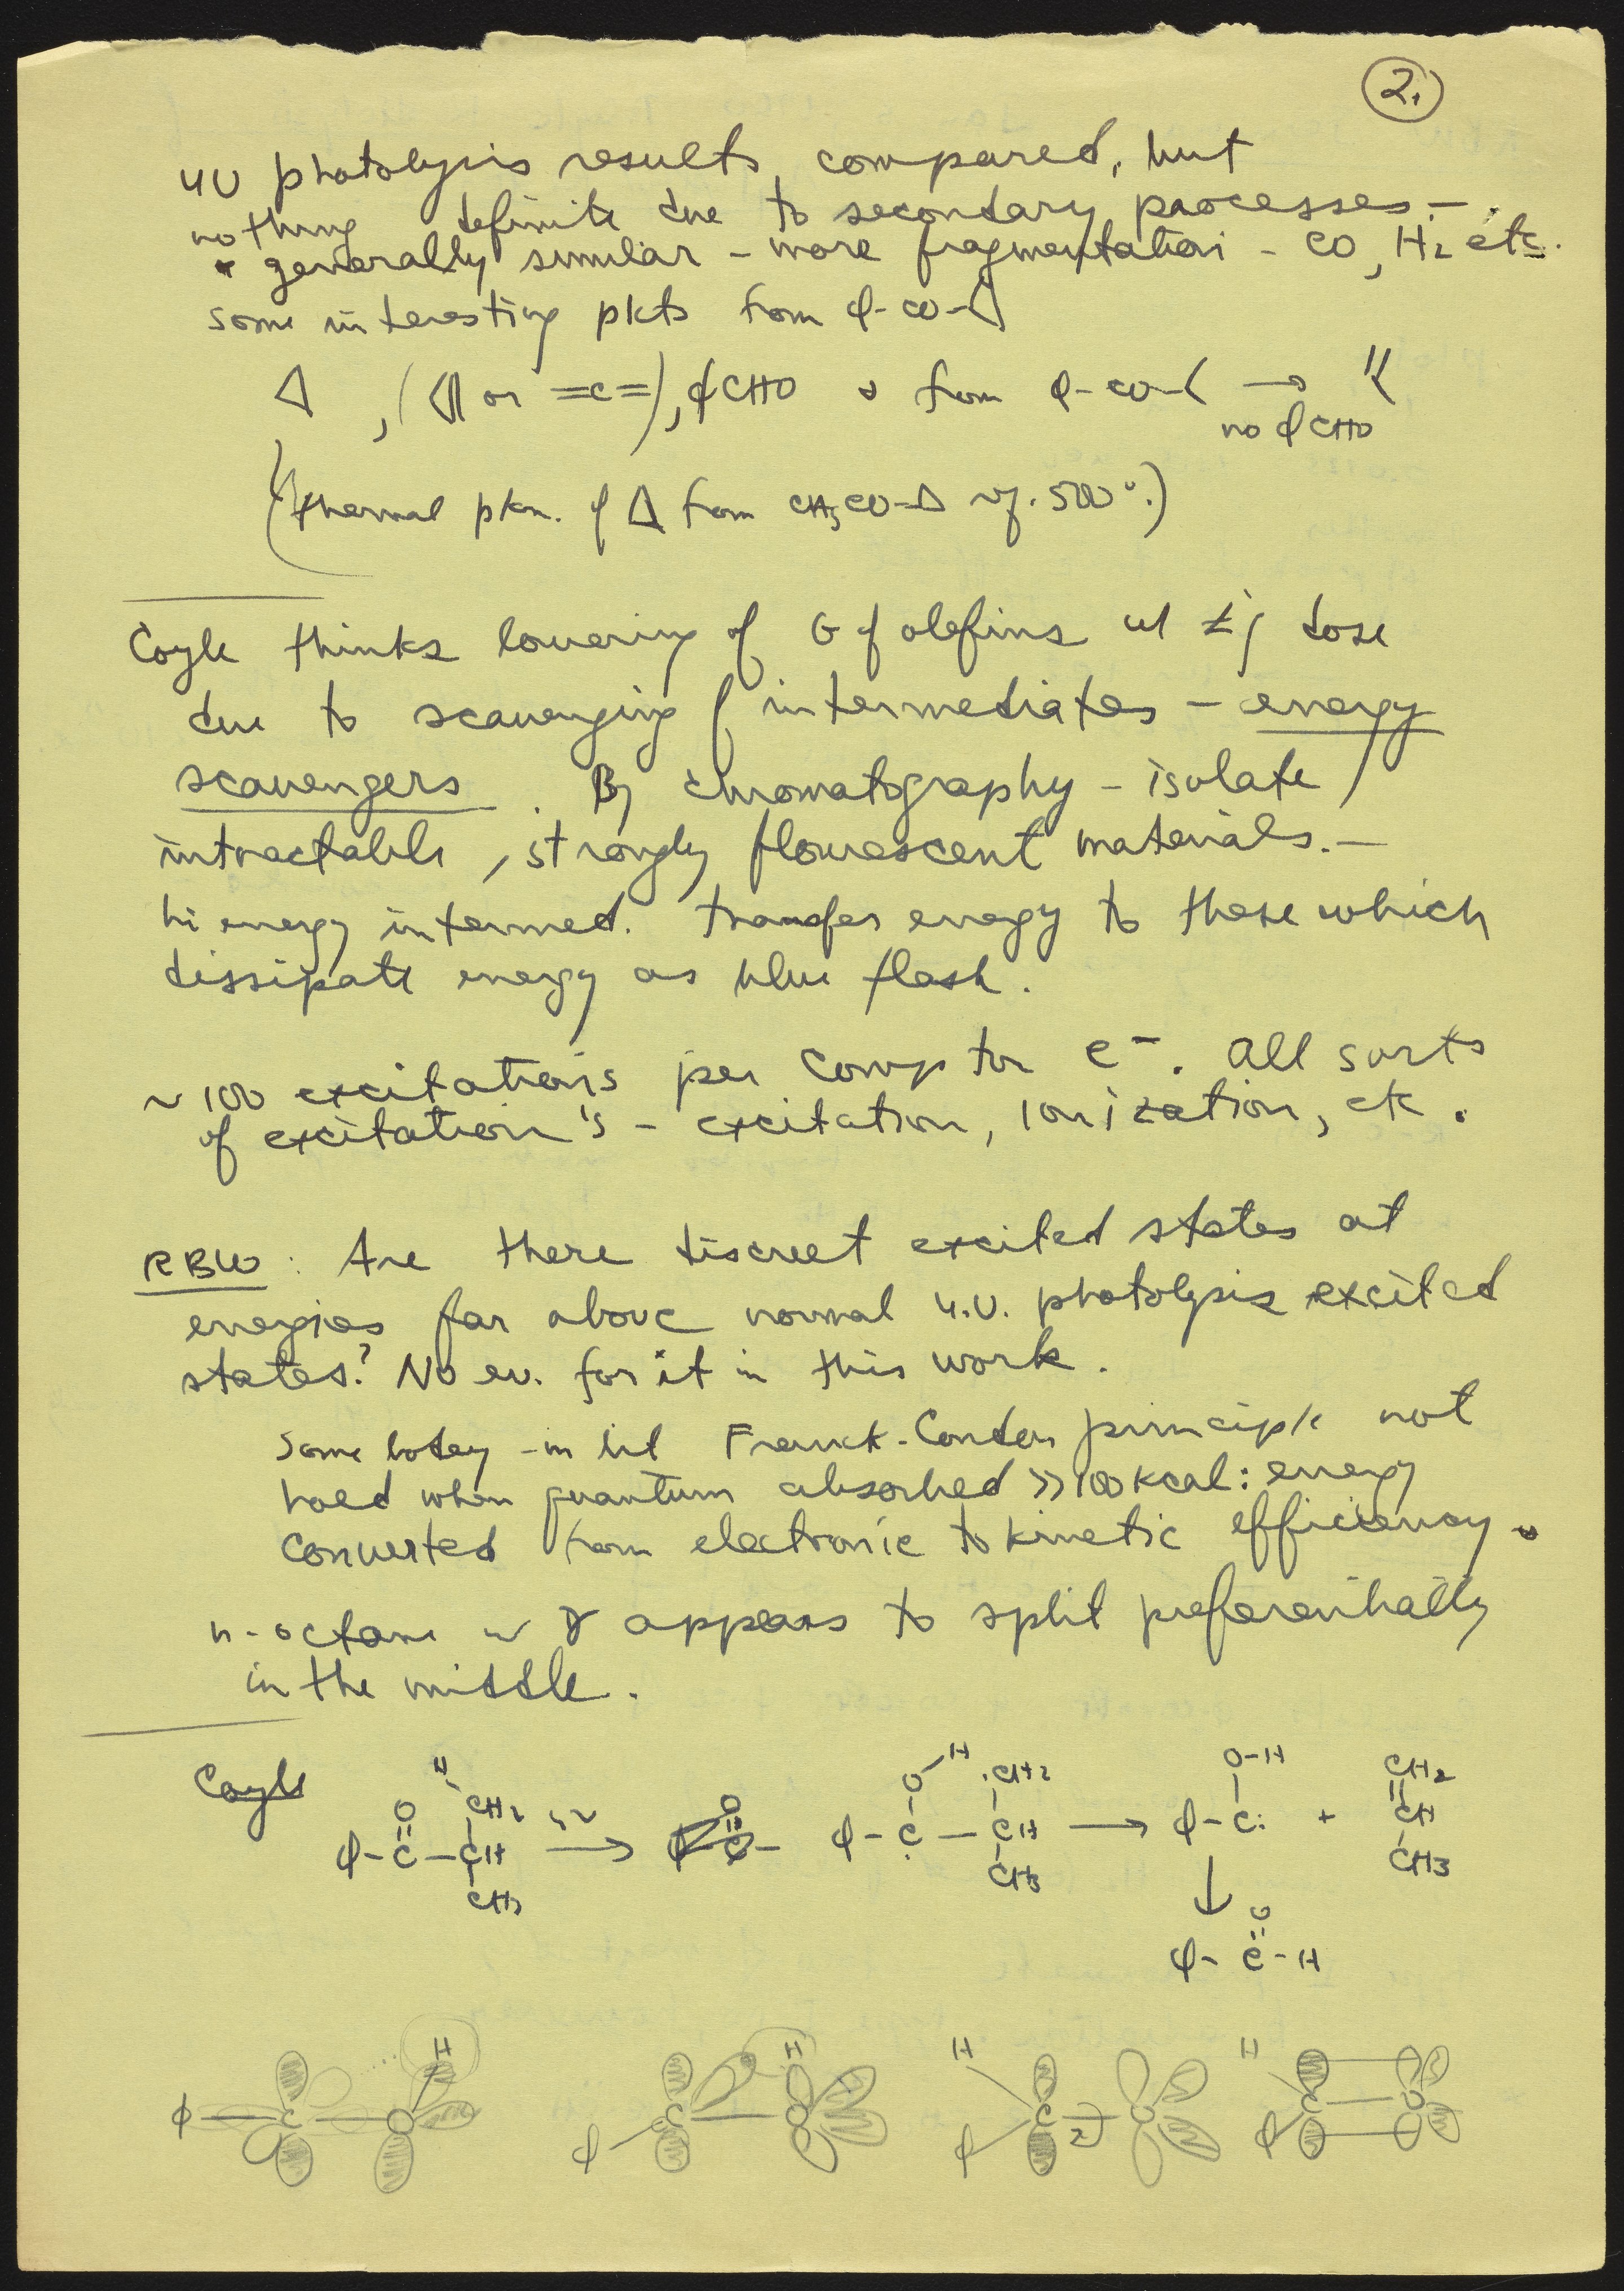 2.
UV photolysis results compared, but
nothing definite due to secondary processes –
generally similar – more fragmentation – CO, H2 etc.
some interesting pkts from φ-CO-△
△ , ( or =C=), φCHO & from φ-CO-< →
no φCHO
(thermal pkn. of △ from CH3CO-△ 500°.)
Coyle thinks lowering of G of olefins w/ dose
due to scavenging of intermediates – energy
scavengers . By chromatography – isolate
intractable, strongly flourescent materials. –
hi energy intermed. transfer energy to these which
dissipate energy as blue flash.
~ 100 excitations per Compton e–. All sorts
of excitation's – excitation, ionization, etc.
RBW: Are there discreet excited states at
energies far above normal u.v. photolysis excited
states? No ev. for it in this work.
Some botey – in lit Franck-Condon principle not
hold when quantum absorbed >> 100 kcal: energy
converted from electronic to kinetic efficiency.
n-octane w γ appears to split preferentially
in the middle.
Coyle
H O-H ·CH2 O-H CH2
O CH2 hν O
φ-C-CH → φ-C-CH → φ-C: + CH
CH3 CH3 CH3
↓
O
φ-C-H
H H H H
φ C O C O C O C O
φ φ φ